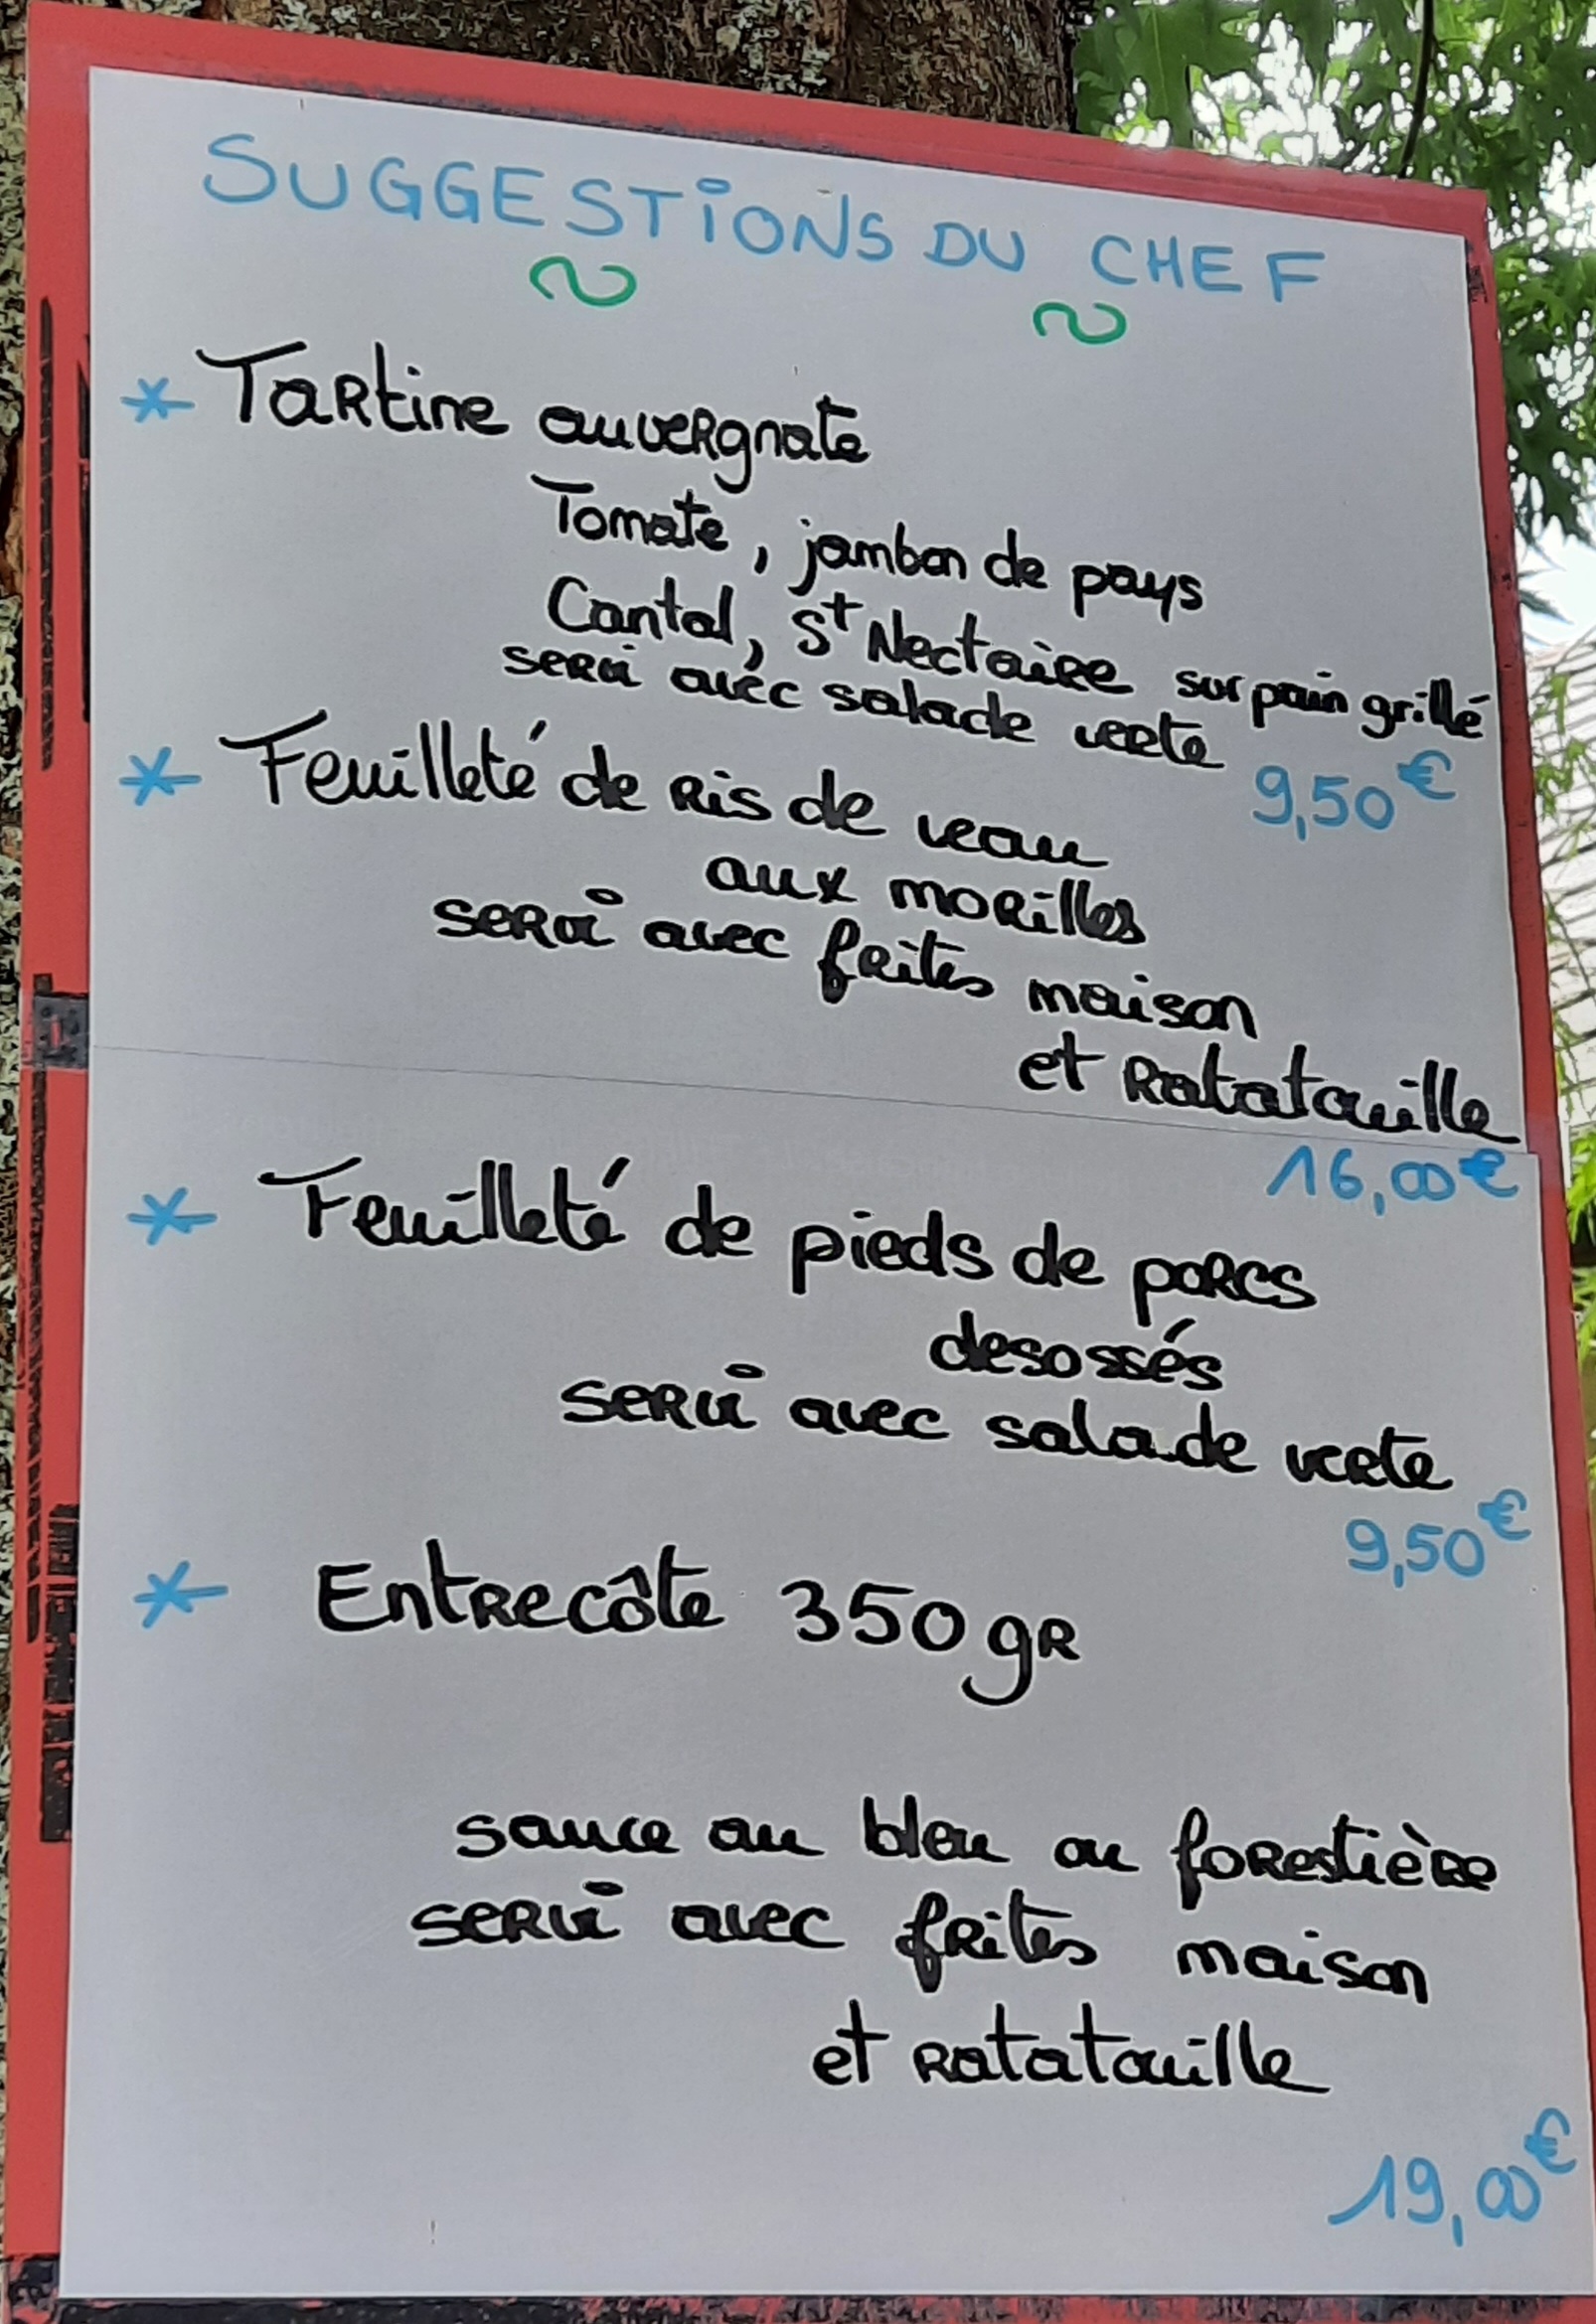 SUGGESTIONS DU CHEF
* Tartine auvergnate
Tomate, jambon de pays
Cantal, St Nectaire sur pain grillé
servi avec salade verte
9,50€
* Feuilleté de ris de veau
aux morilles
servi avec frites maison
et Ratatouille
16,00€
* Feuilleté de pieds de porcs
desossés
servi avec salade verte
9,50€
* Entrecôte 350 gr
sauce au bleu ou forestière
servi avec frites maison
et ratatouille
19,00€